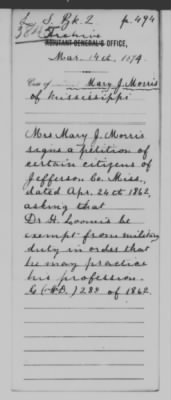 L S. Bk. 2 p. 494
Archive
ADJUTANT GENERAL'S OFFICE,
Mar. 14th, 1879.
Case of Mary J. Morris
of Mississippi
Mrs Mary J. Morris
signs a petition of
certain citizens of
Jefferson Co. Miss,
dated Apr. 24th 1862,
asking that
Dr H. Loomis be
exempt from military
duty in order that
he may practice
his profession.
G (W.D.) 288 of 1862.